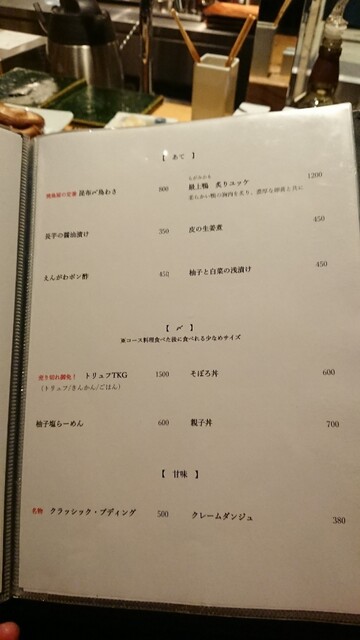 【 あて 】
昆布〆鳥わさ 800
最上鴨 炙りユッケ 1200
柔らかい鴨の胸肉を炙り、濃厚な卵黄と共に
長芋の醤油漬け 350
皮の生姜煮 450
えんがわポン酢 450
柚子と白菜の浅漬け 450
【 〆 】
※コース料理食べた後に食べれる少なめサイズ
売り切れ御免! トリュフTKG 1500
(トリュフ/きんかん/ごはん)
そぼろ丼 600
柚子塩らーめん 600
親子丼 700
【 甘味 】
名物 クラッシック・プディング 500
クレームダンジュ 380